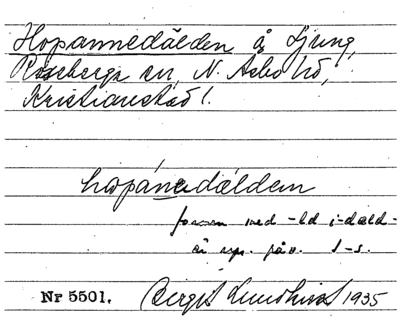 Hopannedälden å Ljung,
Rosebergs sn, N. Åsbo hd,
Kristianstad l.
hopánedäldem
formen med -ld i -däld-
är
Nr 5501. Birgit Lundkvist 1935